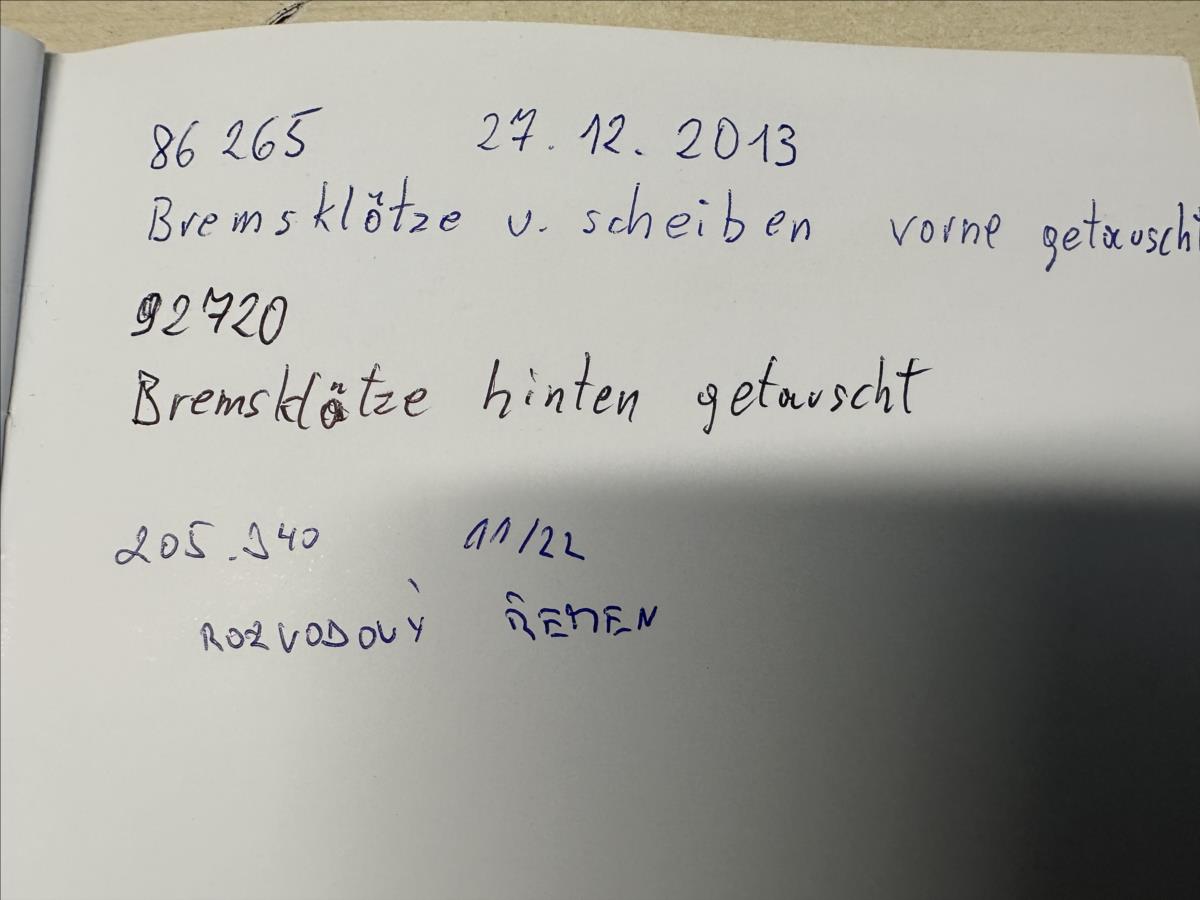 86 265 27.12.2013
Bremsklötze u. scheiben vorne getauscht
92720
Bremsklötze hinten getauscht
205.940 11/22
ROZVODOVÝ ŘEMEN